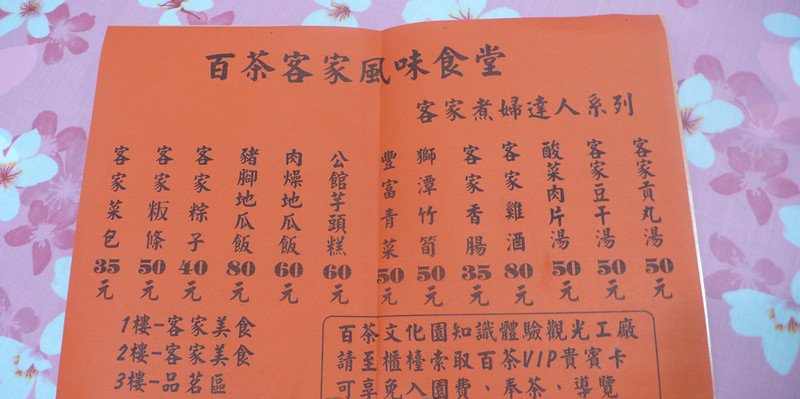 百茶客家風味食堂
客家煮婦達人系列
客家貢丸湯50元
客家豆干湯50元
酸菜肉片湯50元
客家雞酒80元
客家香腸35元
獅潭竹筍50元
豐富青菜50元
公館芋頭糕60元
肉燥地瓜飯60元
豬腳地瓜飯80元
客家粽子40元
客家粄條50元
客家菜包35元
1樓-客家美食
2樓-客家美食
3樓-品茗區
百茶文化園知識體驗觀光工廠
請至櫃檯索取百茶VIP貴賓卡
可享免入園費、奉茶、導覽